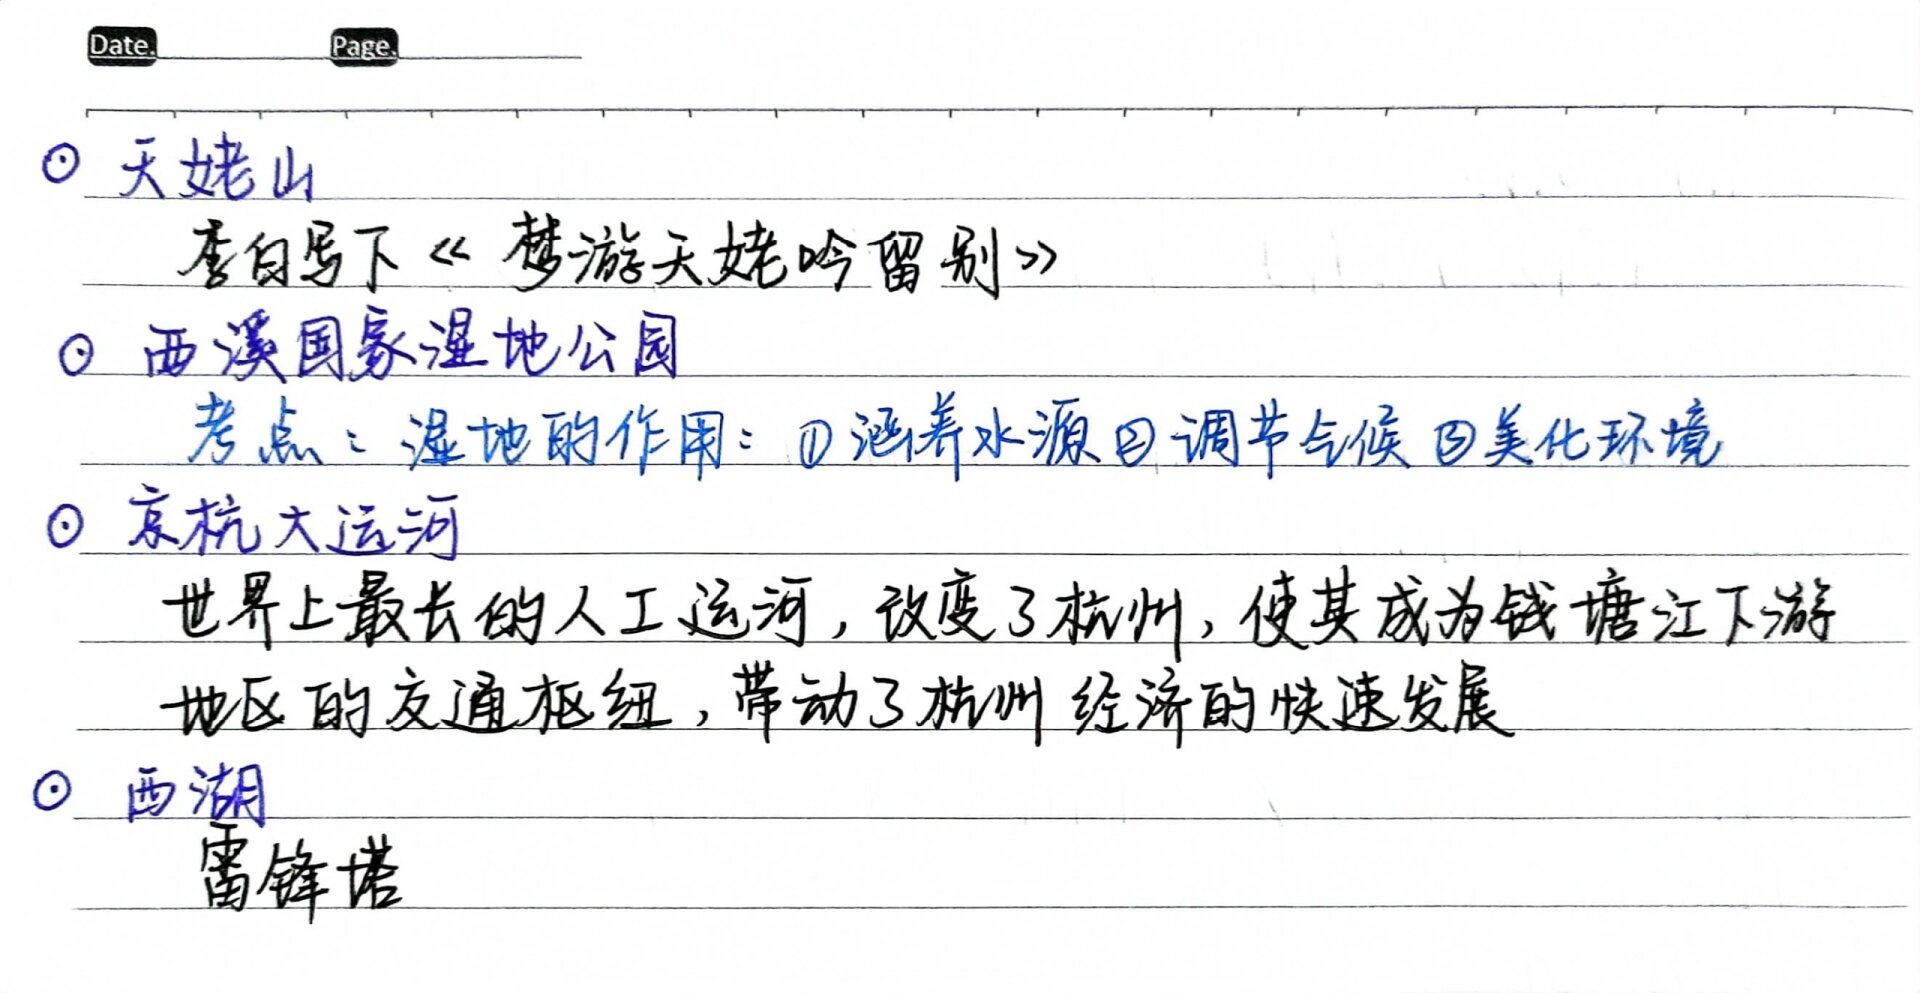 Date. Page.
⊙ 天姥山
李白写下《梦游天姥吟留别》
⊙ 西溪国家湿地公园
考点：湿地的作用：①涵养水源②调节气候③美化环境
⊙ 京杭大运河
世界上最长的人工运河，改变了杭州，使其成为钱塘江下游
地区的交通枢纽，带动了杭州经济的快速发展
⊙ 西湖
雷锋塔